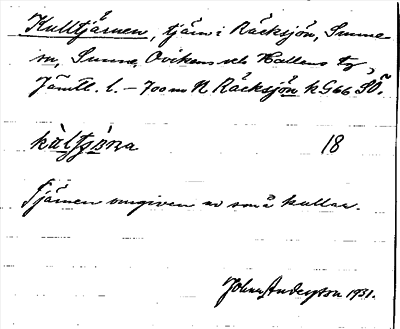 Kulltjärnen, tjärn i Räcksjön, Sunne
sn, Sunne, Ovikens och Hallens tg,
Jämtl. l. – 700 m N Räcksjön k G66 SÖ.
18
Tjärnen omgiven av små kullar.
Johan Anderson 1931.